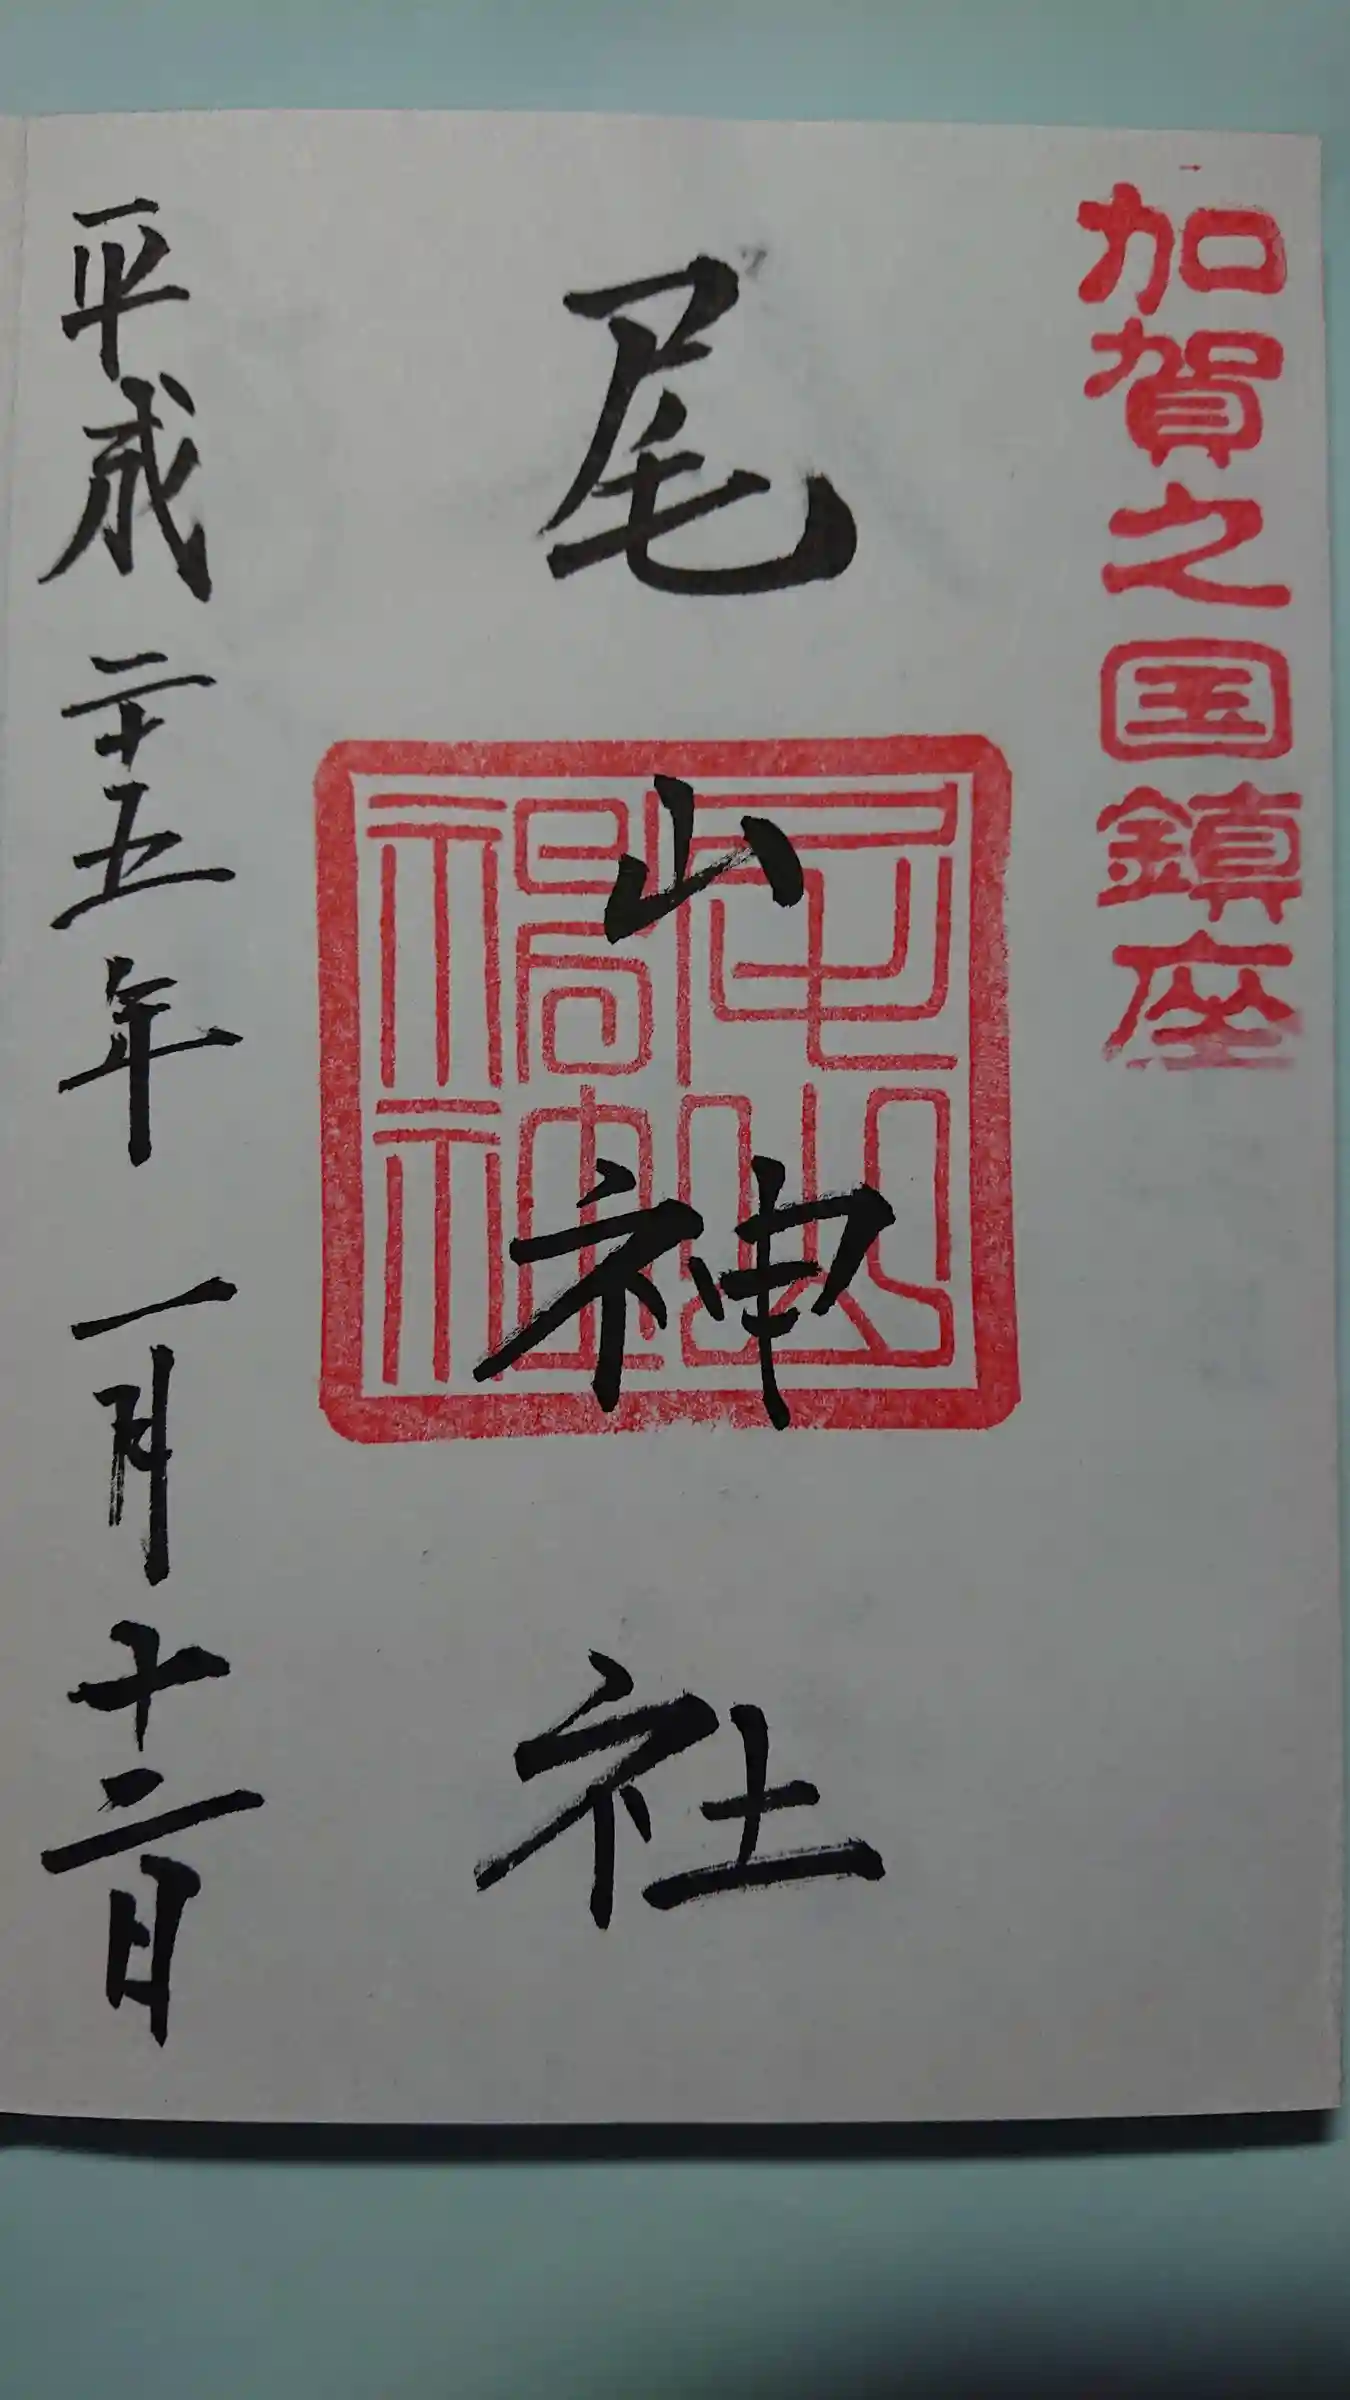 加賀之国鎮座
尾山神社
平成二十五年一月十二日